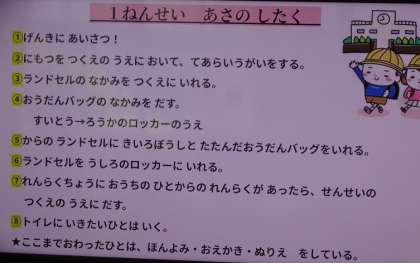 １ねんせい　あさの したく
①げんきに あいさつ！
②にもつを つくえの うえに おいて、てあらいうがいをする。
③ランドセルの なかみを つくえに いれる。
④おうだんバッグの なかみを だす。
すいとう→ろうかのロッカーのうえ
⑤からの ランドセルに きいろぼうしと たたんだおうだんバッグをいれる。
⑥ランドセルを うしろのロッカーに いれる。
⑦れんらくちょうに おうちの ひとからの れんらくが あったら、せんせいの
つくえの うえに だす。
⑧トイレに いきたいひとは いく。
★ここまでおわったひとは、ほんよみ・おえかき・ぬりえ　をしている。